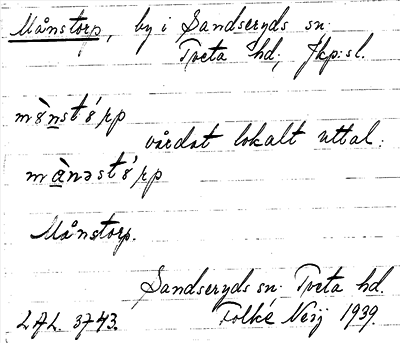 Månstorp, by i Sandseryds sn.
Tveta hd, Jkp:sl.
vårdat lokalt uttal:
Månstorp.
Sandseryds sn. Tveta hd.
LAL. 3743. Folke Neij 1939.